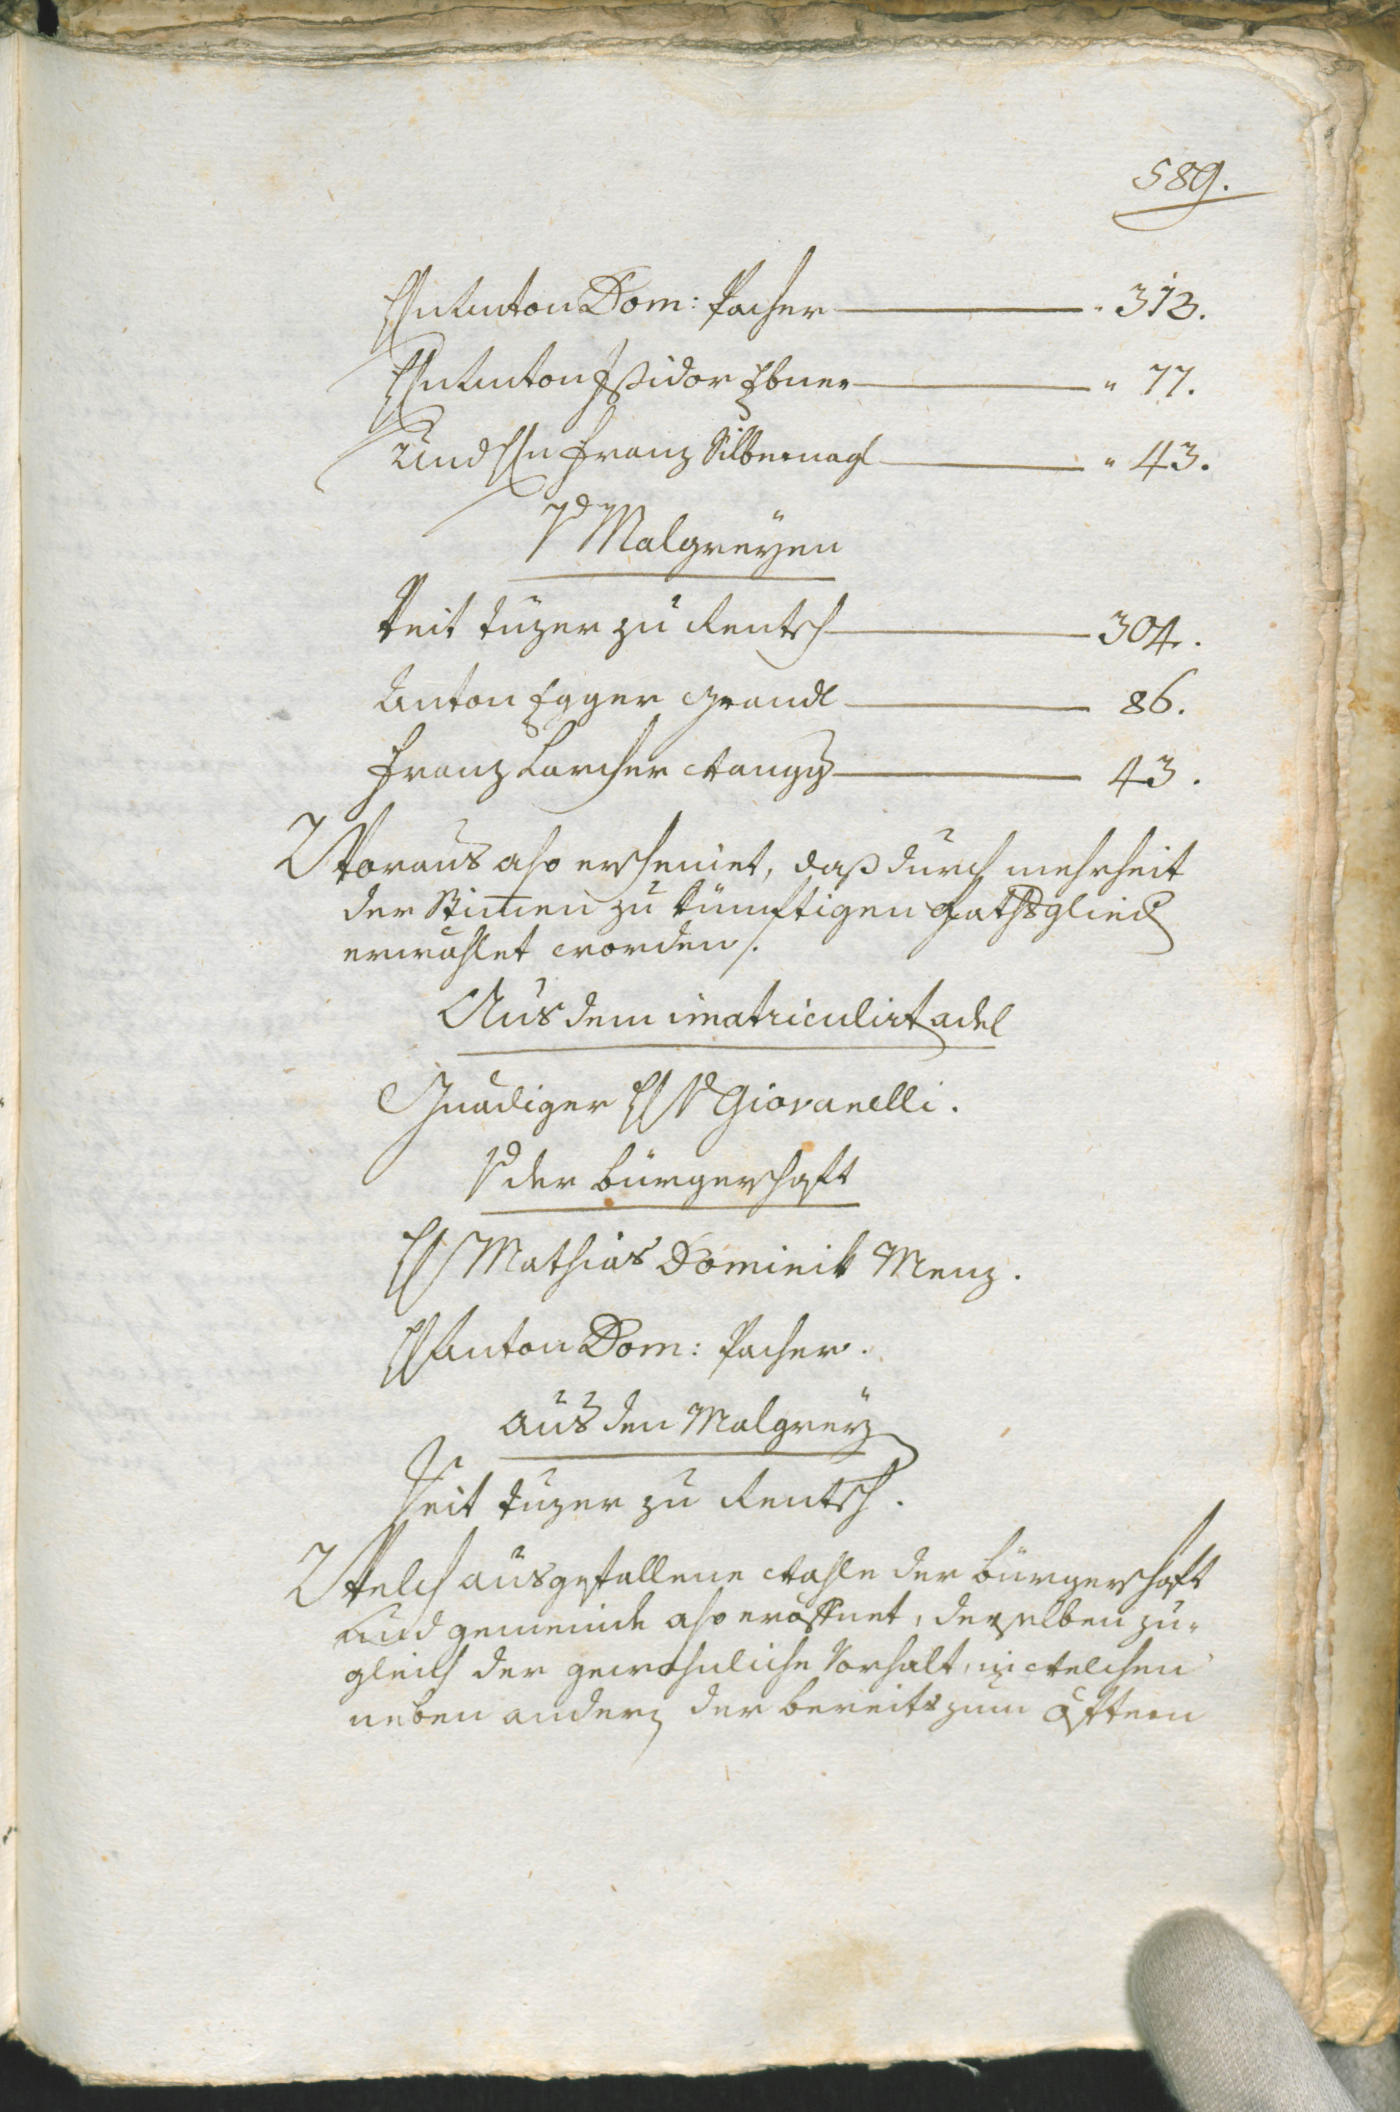 589.
Hn Anton Dom: Pacher — " 313.
Hn Anton Ißidor Ebner — " 77.
Und Hn Franz Silbernagl — " 43.
Malgreÿen
Veit Tuzer zu Rentsch — 304.
Anton Egger Grandl — 86.
Franz Larcher — 43.
Woraus also erscheinet, daß durch mehrheit
der Stimen zu künftigen Rathsglied
erwählet worden.
Aus dem imatriculirt adel
Gnädiger H v Giovanelli.
der bürgerschaft
H Mathias Dominik Menz.
H Anton Dom: Pacher.
aus den Malgreÿ
Veit Tuzer zu Rentsch.
Welch ausgefallene wahle der bürgerschaft
und gemeinde also eröffnet, derselben zu-
gleich der gewohnliche Vorhalt, in welchen
neben andern der bereits zum öftern